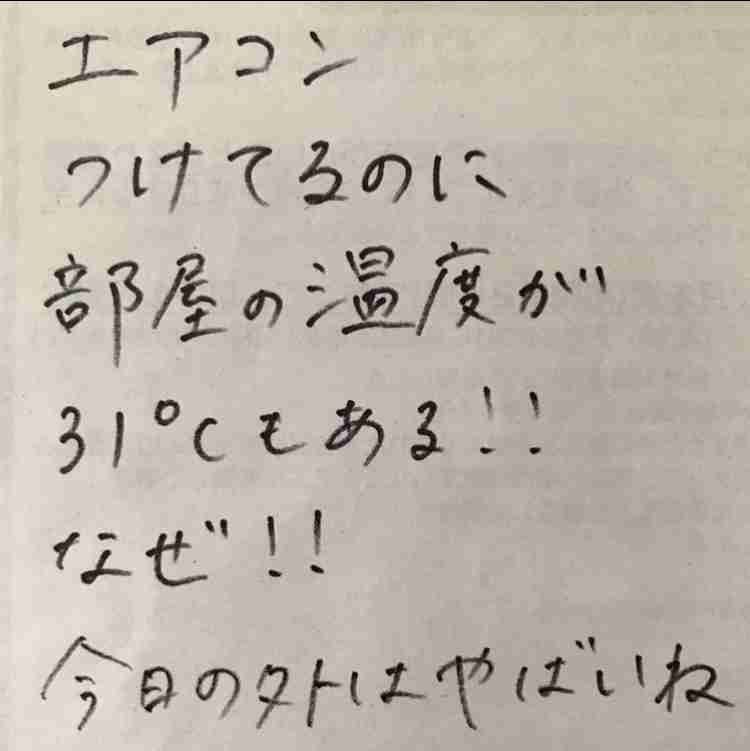 エアコン
つけてるのに
部屋の温度が
31℃もある!!
なぜ!!
今日の外はやばいね